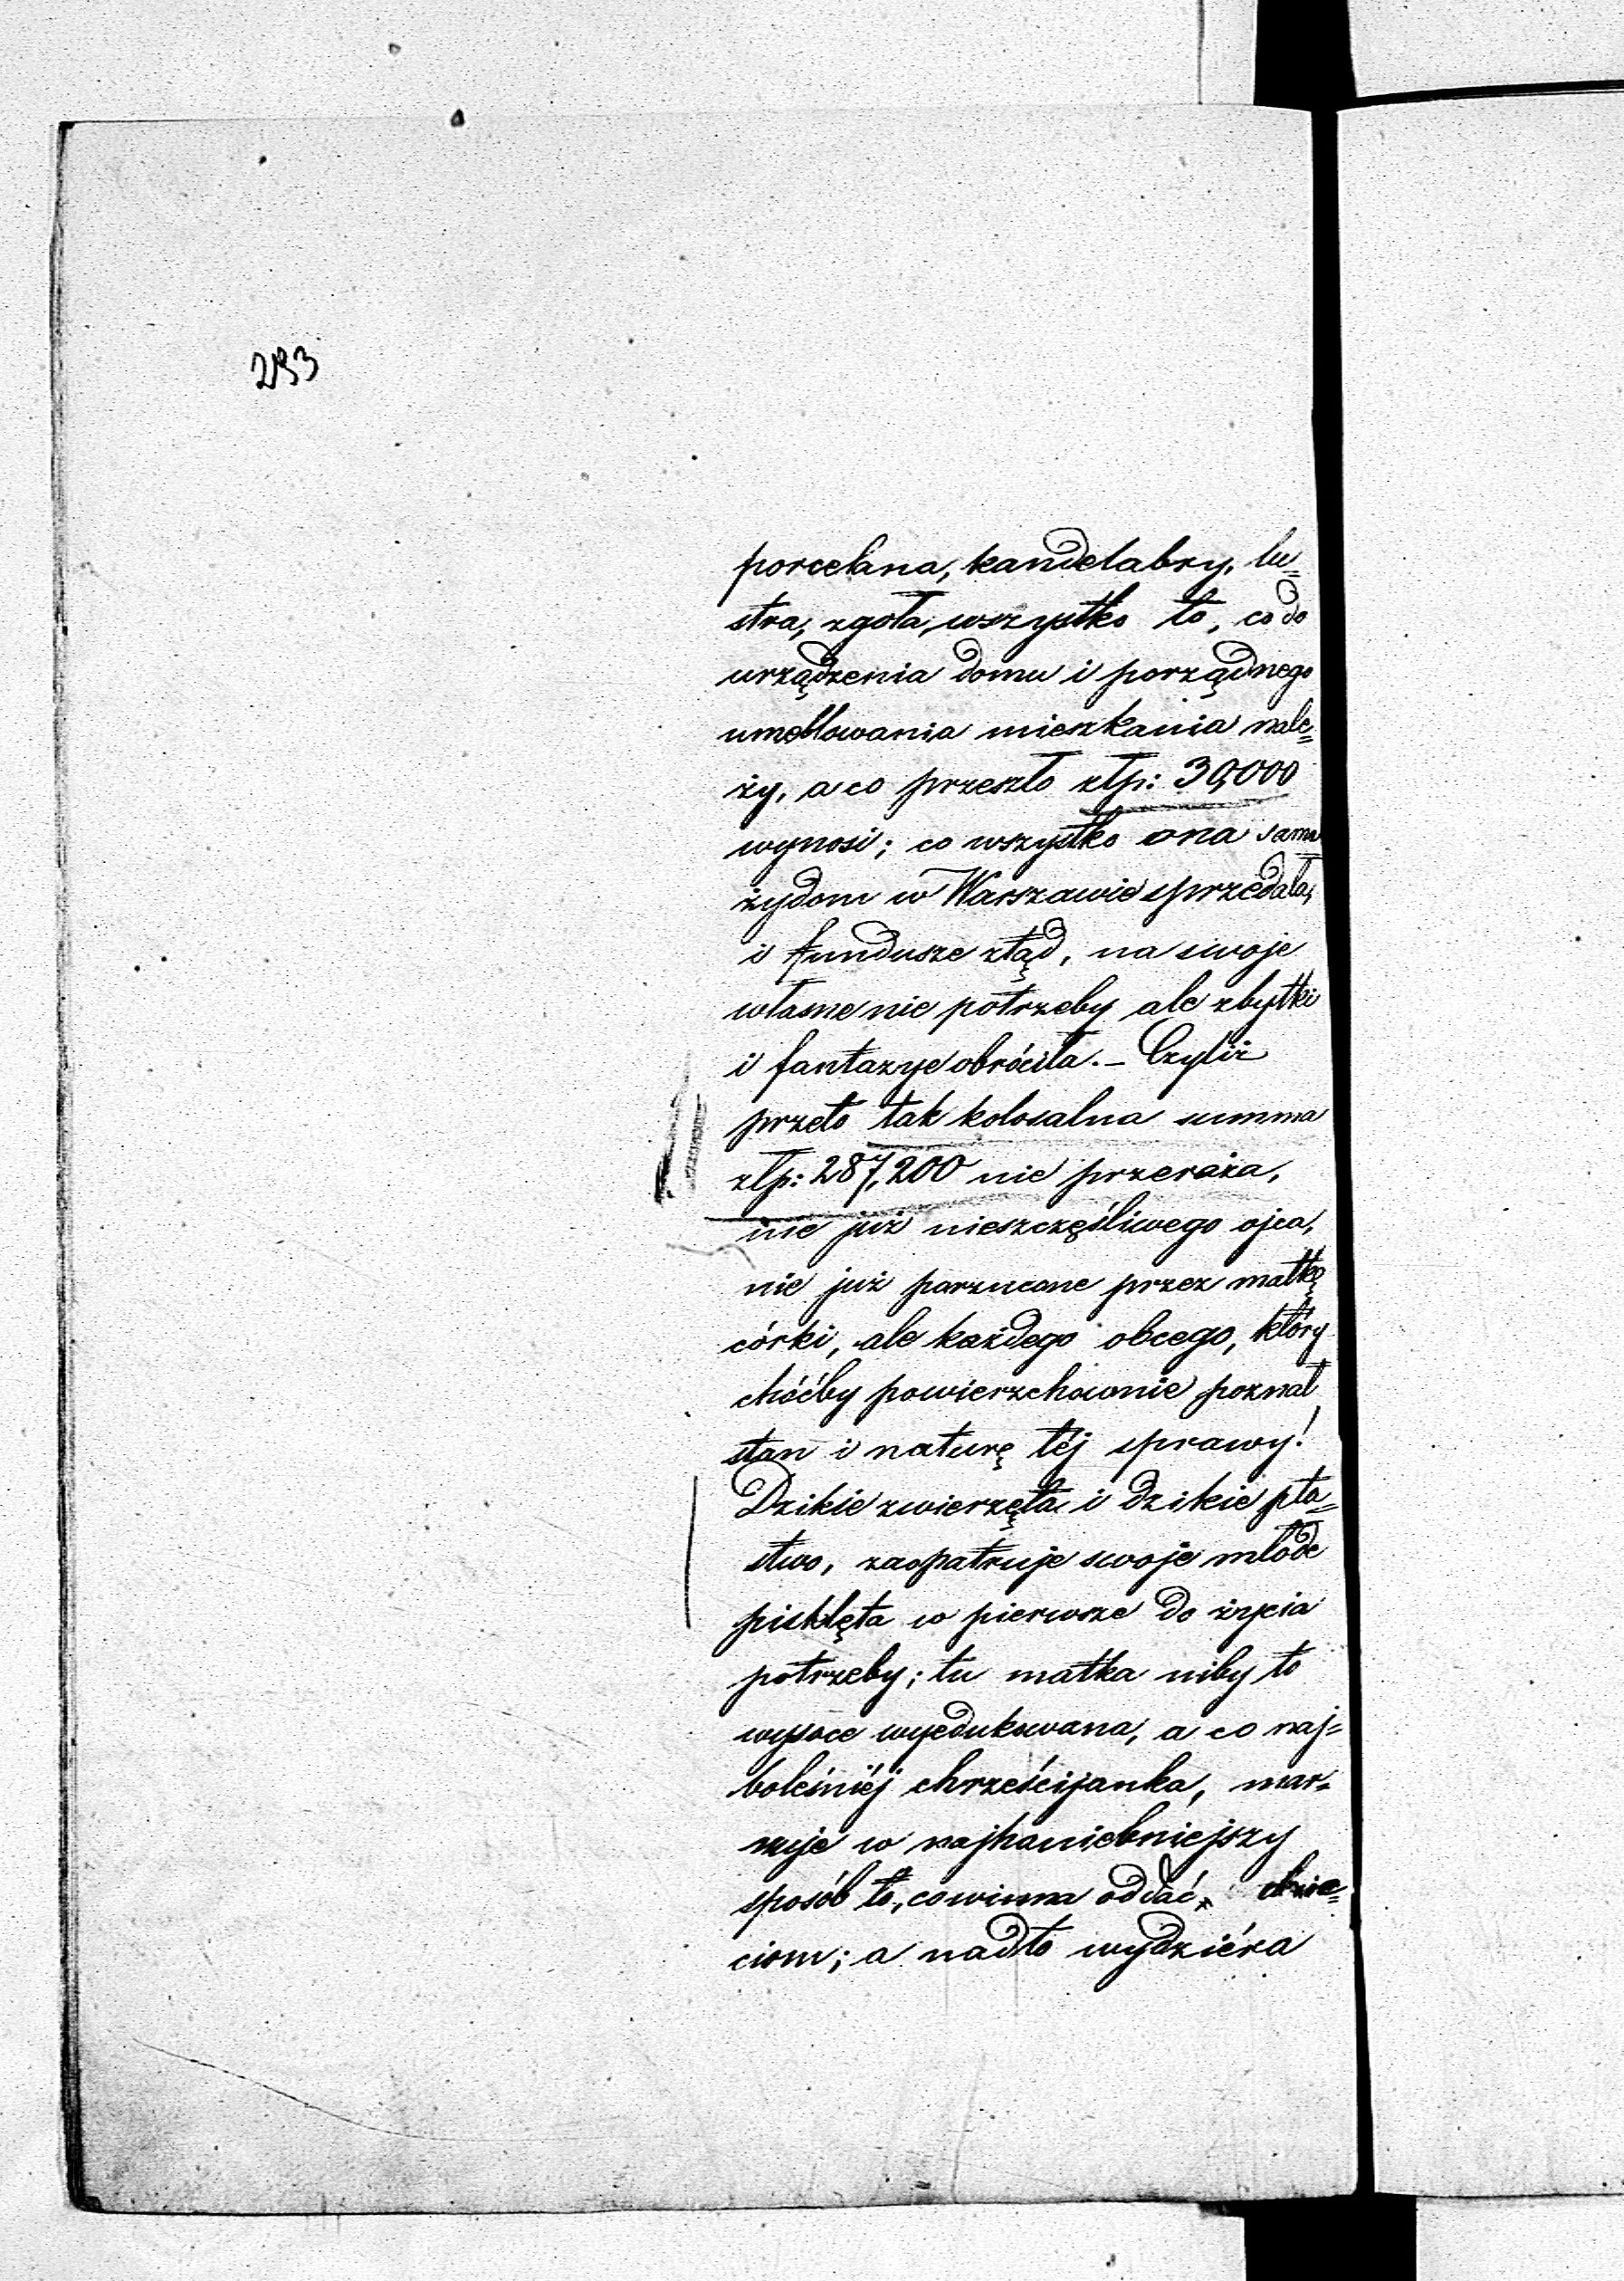 porcelana, kandelabry, lu=
stra, zgoła, wszystko to, co do
urządzenia domu i porządnego
umeblowania mieszkania nale=
ży, a co przeszło złp: 30,000
wynosi; co wszystko ona sama
żydom w Warszawie sprzedała,
i fundusze ztąd, na swoje
własne nie potrzeby ale zbytki
i fantazye obróciła. – Czyliż
przeto tak kolosalna summa
złp: 287,200 nie przeraża,
nie już nieszczęśliwego ojca,
nie już porzucone przez matkę
córki, ale każdego obcego, który
choćby powierzchownie poznał
stan i naturę téj sprawy!
Dzikie zwierzęta i dzikie pta=
stwo, zaopatruje swoje młode
pisklęta w pierwsze do życia
potrzeby; tu matka niby to
wysoce wyedukowana, a co naj=
boleśniéj chrześcijanka, mar=
nuje w najhaniebniejszy
sposób to, co winna oddać, dzie=
ciom; a nadto wydziéra